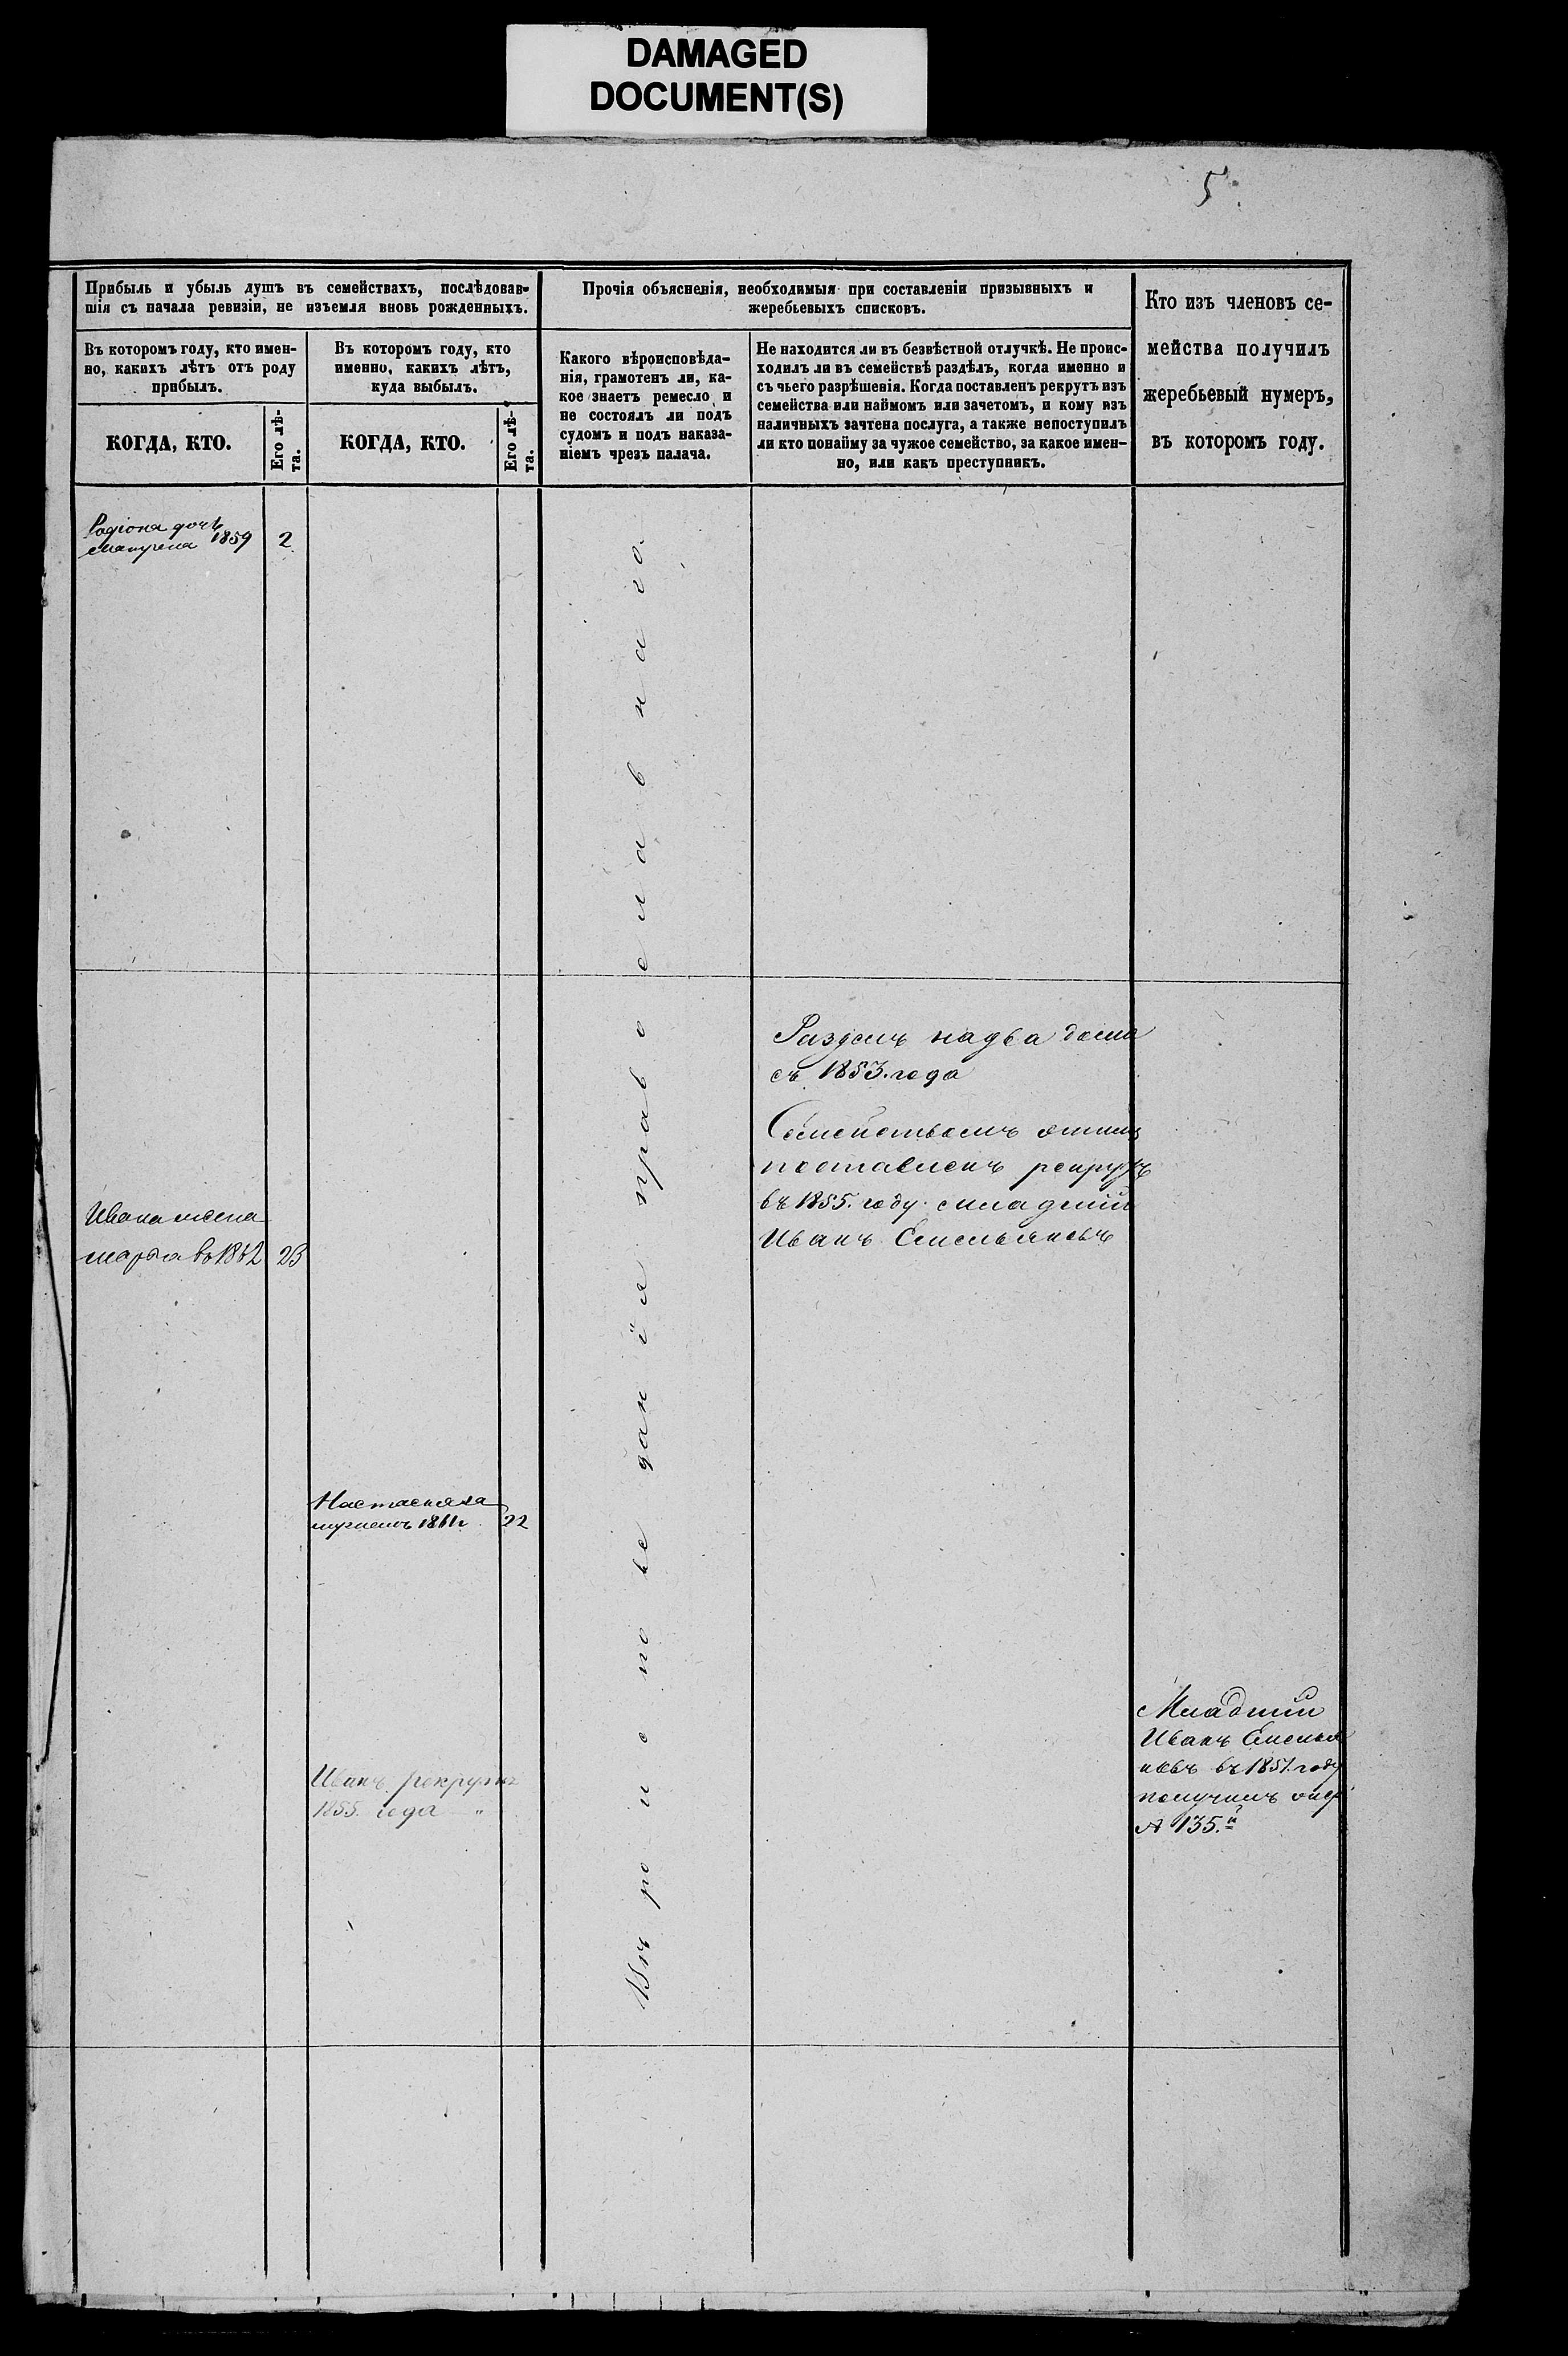 DAMAGED
DOCUMENT(S)
5.
Прибыль и убыль душъ въ семействахъ, послѣдовав-
шія съ начала ревизіи, не изъемля вновь рожденныхъ.
Прочія объясненія, необходимыя при составленіи призывныхъ и
жеребьевыхъ списковъ.
Кто изъ членовъ се-
мейства получилъ
жеребьевый нумеръ,
въ которомъ году.
Въ которомъ году, кто имен-
но, какихъ лѣтъ отъ роду
прибылъ.
Въ которомъ году, кто
именно, какихъ лѣтъ,
куда выбылъ.
Какого вѣроисповѣда-
нія, грамотенъ ли, ка-
кое знаетъ ремесло и
не состоялъ ли подъ
судомъ и подъ наказа-
ніемъ чрезъ палача.
Не находится ли въ безвѣстной отлучкѣ. Не проис-
ходилъ ли въ семействѣ раздѣлъ, когда именно и
съ чьего разрѣшенія. Когда поставленъ рекрутъ изъ
семейства или наймомъ или зачетомъ, и кому изъ
наличныхъ зачтена послуга, а также непоступилъ
ли кто понайму за чужое семейство, за какое имен-
но, или какъ преступникъ.
КОГДА, КТО.
Его лѣ-
та.
КОГДА, КТО.
Его лѣ-
та.
Родіона дочь
1859 2
Вѣроисповеданія православнаго.
Раздѣлъ на два дома
съ 1853. года
Семействомъ
поставленъ рекрутъ
въ 1855. году младшій
Иванъ Емельяновъ
Ивана жена
Марфа въ 1862 23
Настасья за
мужемъ 1861г 22
Иванъ рекрутъ
1855. года "
Младшій
Иванъ Емелья
новъ въ 1851. году
получилъ
№ 135.й